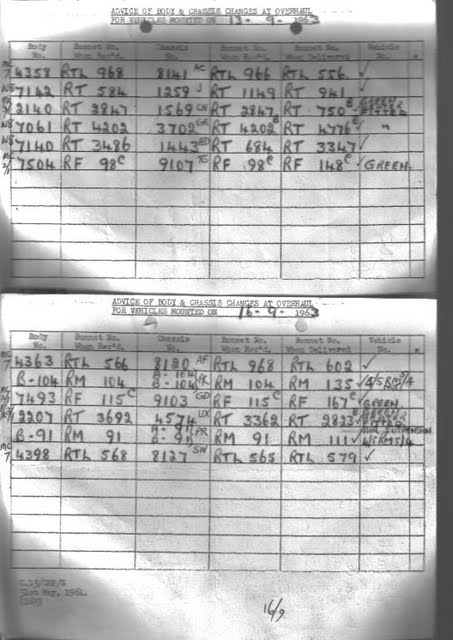 ADVICE OF BODY & CHASSIS CHANGES AT OVERHAUL
FOR VEHICLES MOUNTED ON 13-9-1963
Body No. Bonnet No. When Rec'd. Chassis No. Bonnet No. When Rec'd. Bonnet No. When Delivered Vehicle No.
4358 RTL 968 8141 AC RTL 966 RTL 556 ✓
7142 RT 584 1259 J RT 1149 RT 941 ✓
2140 RT 2847 1569 LN RT 2847 RT 750 B GREEN
7061 RT 4202 3702 GR RT 4202 B RT 4776 B ✓ "
7140 RT 3486 1443 RT 684 RT 3347 ✓
7504 RF 98 C 9107 TG RF 98 C RF 148 C ✓ GREEN.
ADVICE OF BODY & CHASSIS CHANGES AT OVERHAUL
FOR VEHICLES MOUNTED ON 16-9-1963
Body No. Bonnet No. When Rec'd. Chassis No. Bonnet No. When Rec'd. Bonnet No. When Delivered Vehicle No.
4363 RTL 566 8120 AF RTL 968 RTL 602 ✓
B-104 RM 104 B-104 RM 104 RM 135 ✓ 4/5 RM3/4
7493 RF 115 C 9103 GD RF 115 C RF 167 C ✓ GREEN
2207 RT 3692 4574 UX RT 3362 RT 2823 GREEN
B-91 RM 91 B-91 PR RM 91 RM 111 ✓ AIR SUSPENSION 4/5 RM3/4
4398 RTL 568 8127 SW RTL 565 RTL 579 ✓
31st May, 1961.
16/9